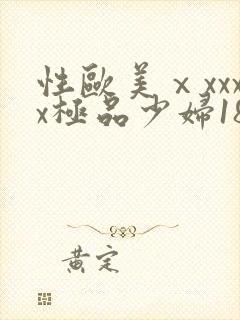 性歐美ⅹxxx
x極品少婦18
黄定